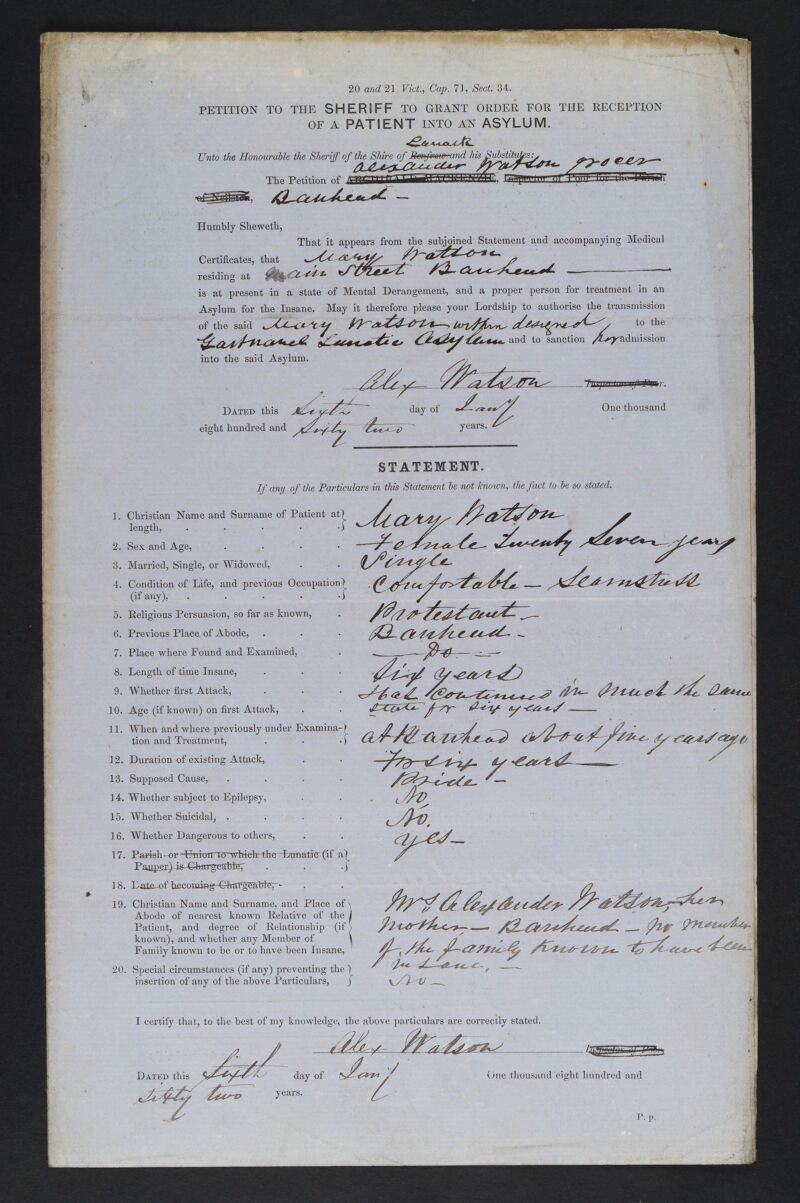 20 and 21 Vict., Cap. 71, Sect. 34.
PETITION TO THE SHERIFF TO GRANT ORDER FOR THE RECEPTION
OF A PATIENT INTO AN ASYLUM.
Lanark
Unto the Honourable the Sheriff of the Shire of Renfrew and his Substitutes:
Alexander Watson grocer
The Petition of ARCHIBALD MACKENZIE, Inspector of Poor for the Parish
of Neilston, Barrhead —
Humbly Sheweth,
That it appears from the subjoined Statement and accompanying Medical
Certificates, that Mary Watson
residing at Main Street Barrhead
is at present in a state of Mental Derangement, and a proper person for treatment in an
Asylum for the Insane. May it therefore please your Lordship to authorise the transmission
of the said Mary Watson within designed to the
Gartnavel Lunatic Asylum and to sanction her admission
into the said Asylum.
Alex Watson Inspector of Poor.
DATED this Sixth day of Jany One thousand
eight hundred and Sixty two years.
STATEMENT.
If any of the Particulars in this Statement be not known, the fact to be so stated.
1. Christian Name and Surname of Patient at length, Mary Watson
2. Sex and Age, Female Twenty Seven years
3. Married, Single, or Widowed, Single
4. Condition of Life, and previous Occupation (if any), Comfortable — Seamstress
5. Religious Persuasion, so far as known, Protestant —
6. Previous Place of Abode, Barrhead —
7. Place where Found and Examined, — Do —
8. Length of time Insane, Six years
9. Whether first Attack, Has continued in much the same
10. Age (if known) on first Attack, state for six years —
11. When and where previously under Examination and Treatment, at Barrhead about five years ago
12. Duration of existing Attack, For six years —
13. Supposed Cause, Pride —
14. Whether subject to Epilepsy, No
15. Whether Suicidal, No.
16. Whether Dangerous to others, yes —
17. Parish or Union to which the Lunatic (if a Pauper) is Chargeable,
18. Date of becoming Chargeable,
19. Christian Name and Surname, and Place of Abode of nearest known Relative of the Patient, and degree of Relationship (if known), and whether any Member of Family known to be or to have been Insane,
Mrs Alexander Watson, her
mother — Barrhead — no member
of the family known to have been
insane. —
20. Special circumstances (if any) preventing the insertion of any of the above Particulars, No —
I certify that, to the best of my knowledge, the above particulars are correctly stated.
Alex Watson
DATED this Sixth day of Jany One thousand eight hundred and
Sixty two years.
P. p.